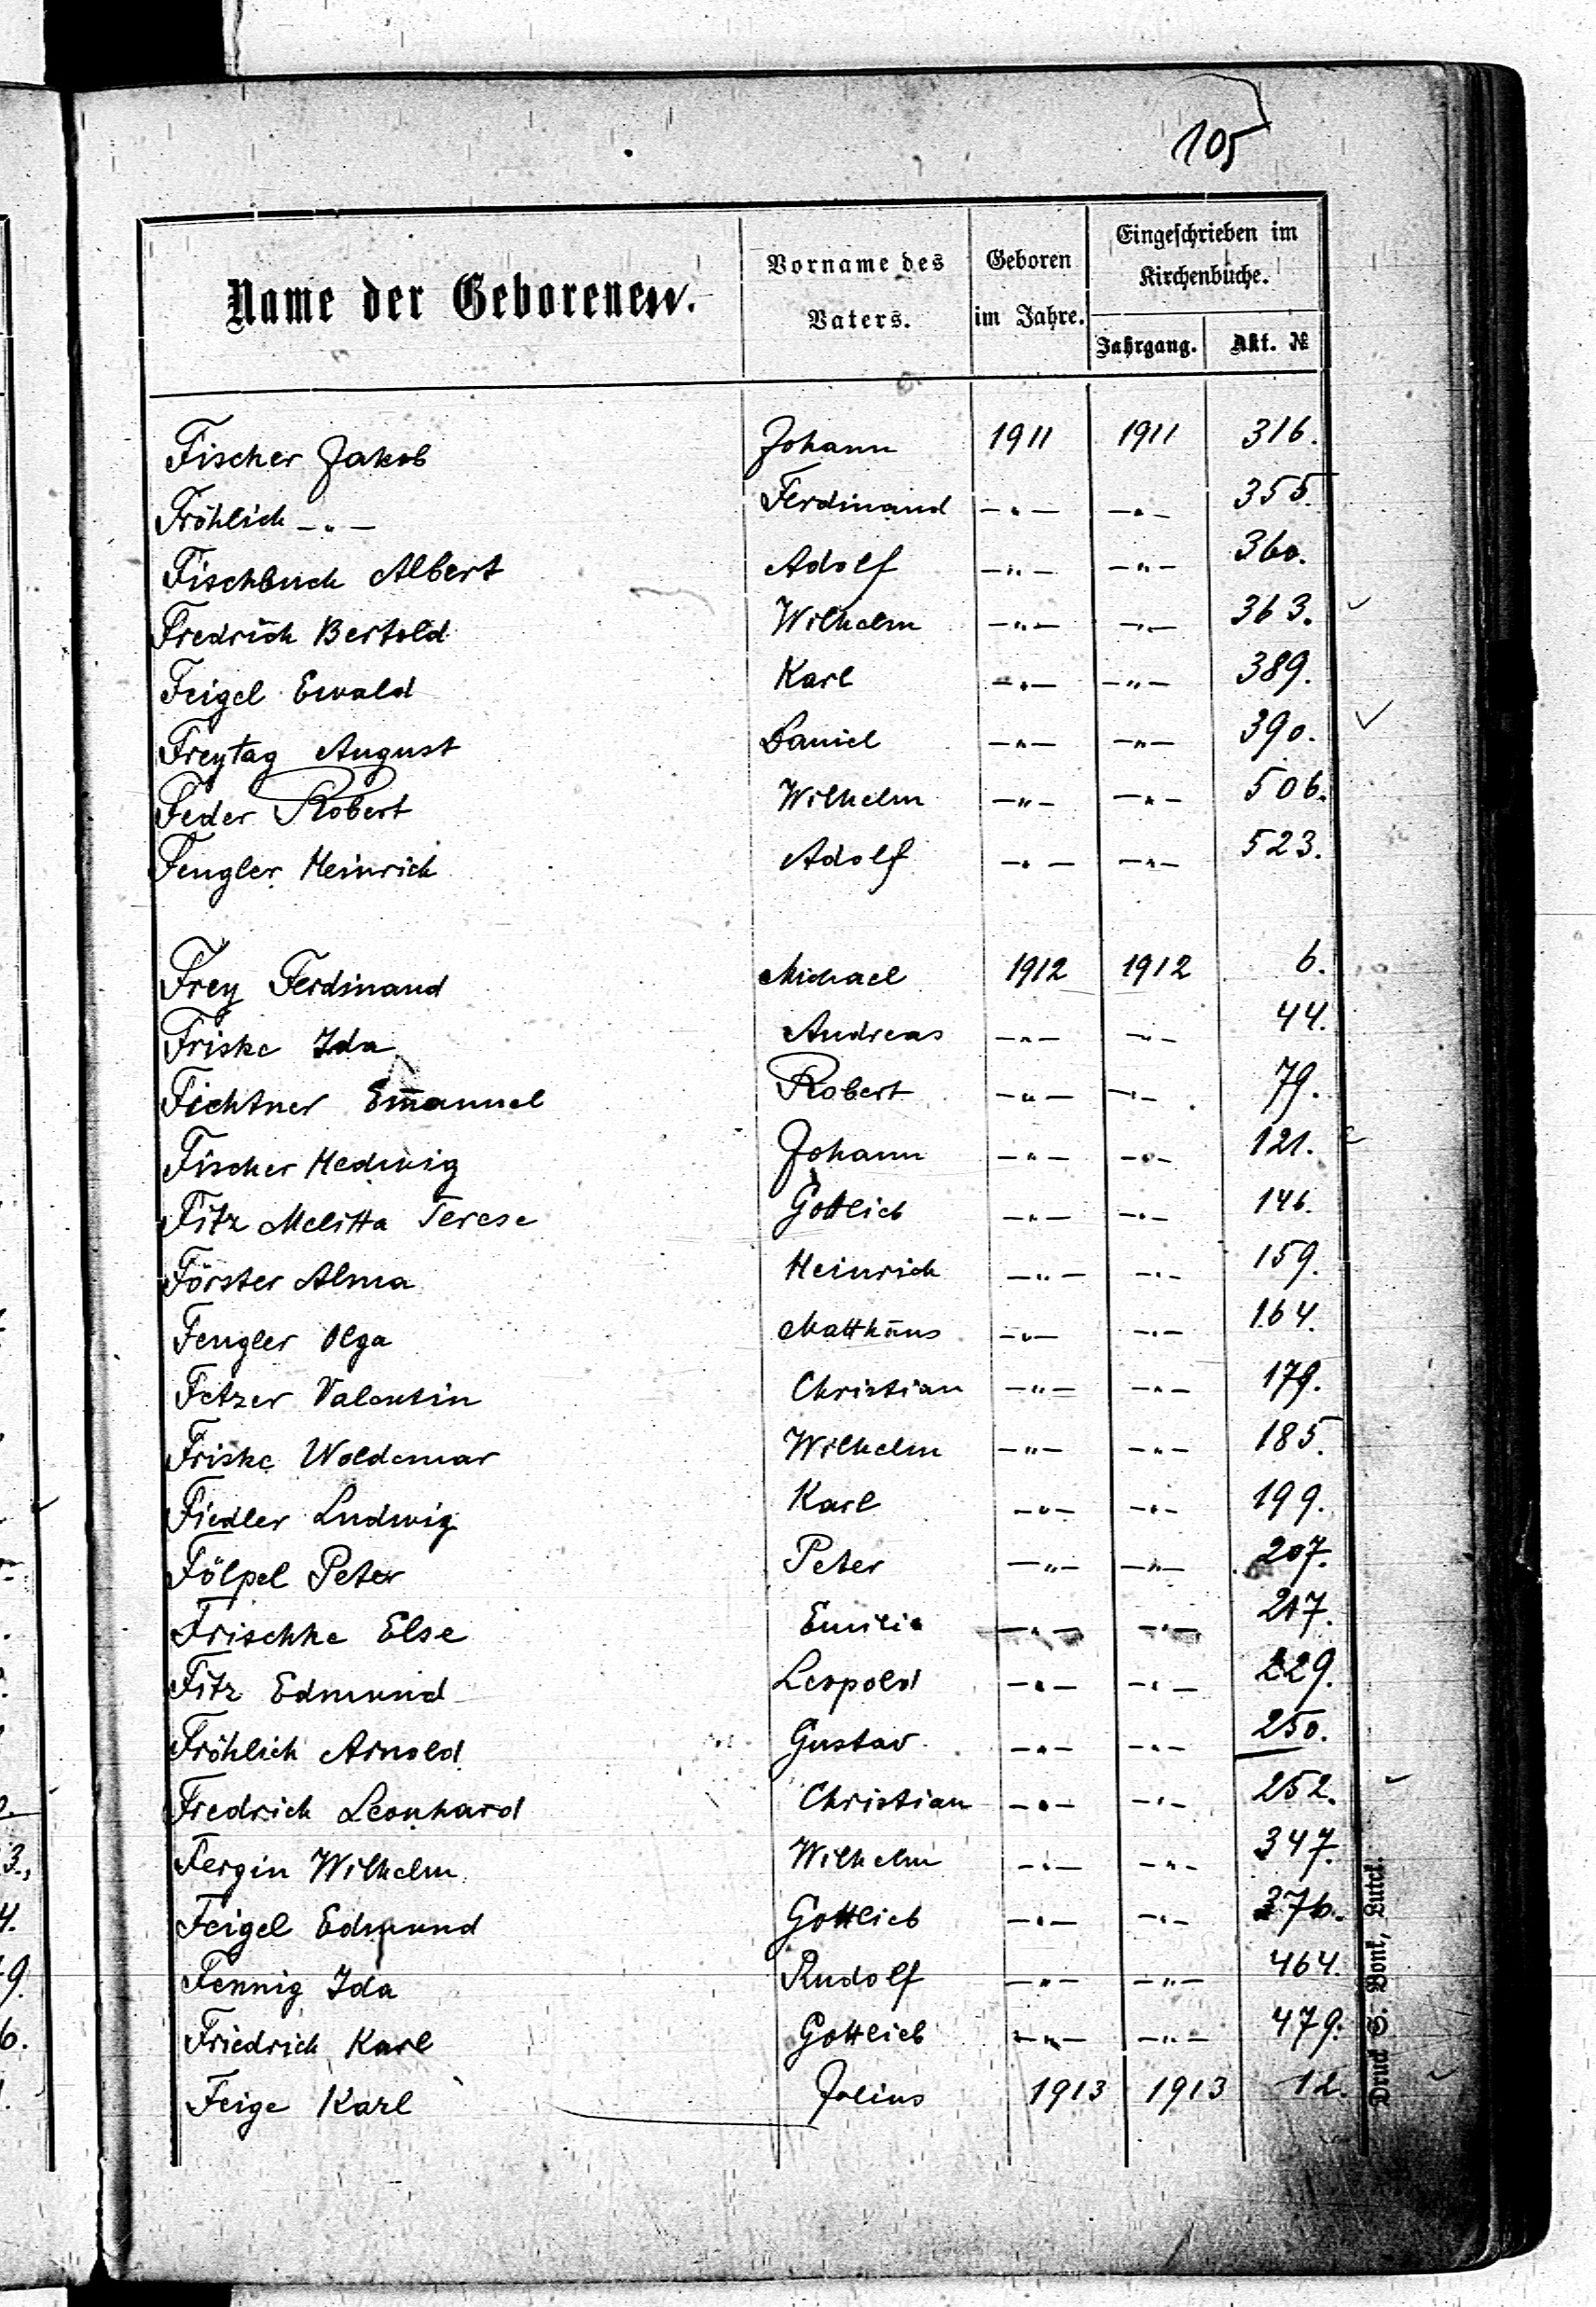 105
Name der Geborenen.
Vorname des Vaters.
Geboren im Jahre.
Eingeschrieben im Kirchenbuche.
Jahrgang. Akt. №
Fischer Jakob Johann 1911 1911 316.
Fröhlich -„- Ferdinand -„- -„- 355.
Fischbuch Albert Adolf -„- -„- 360.
Fredrich Bertold Wilhelm -„- -„- 363.
Feigel Ewald Karl -„- -„- 389.
Freytag August Daniel -„- -„- 390.
Feder Robert Wilhelm -„- -„- 506.
Fengler Heinrich Adolf -„- -„- 523.
Frey Ferdinand Michael 1912 1912 6.
Friske Ida Andreas -„- -„- 44.
Fichtner Em̅anuel Robert -„- -„- 79.
Fischer Hedwig Johann -„- -„- 121.
Fitz Melitta Terese Gottlieb -„- -„- 146.
Förster Alma Heinrich -„- -„- 159.
Fengler Olga Matthäus -„- -„- 164.
Fetzer Valentin Christian -„- -„- 179.
Friske Woldemar Wilhelm -„- -„- 185.
Fiedler Ludwig Karl -„- -„- 199.
Fölpel Peter Peter -„- -„- 207.
Frischke Else Emilie -„- -„- 217.
Fitz Edmund Leopold -„- -„- 229.
Fröhlich Arnold Gustav -„- -„- 250.
Fredrich Leonhard Christian -„- -„- 252.
Fergin Wilhelm Wilhelm -„- -„- 347.
Feigel Edmund Gottlieb -„- -„- 376.
Fennig Ida Rudolf -„- -„- 464.
Friedrich Karl Gottlieb -„- -„- 479.
Feige Karl Julius 1913 1913 12.
Druck S. Bonk, Lutck.